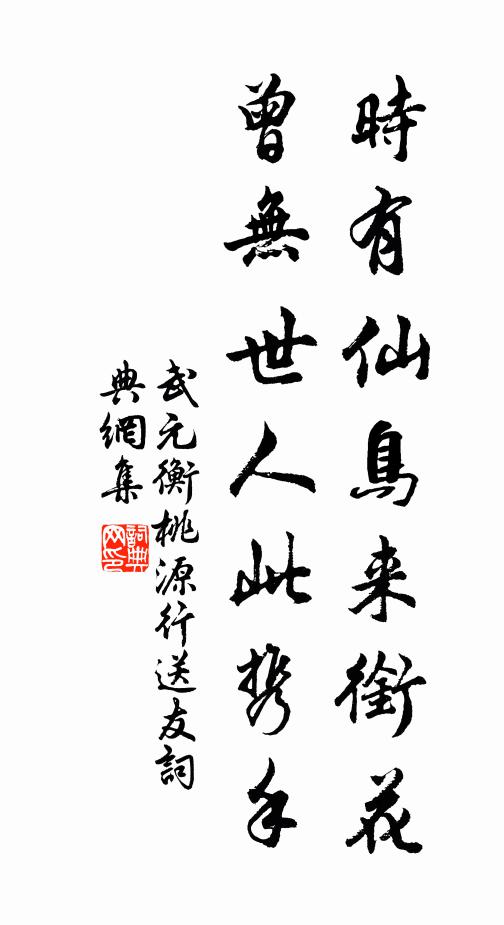 時有仙鳥来銜花
曾無世人此携手
武元衡桃源行送友詞
典網集
詞典
网印